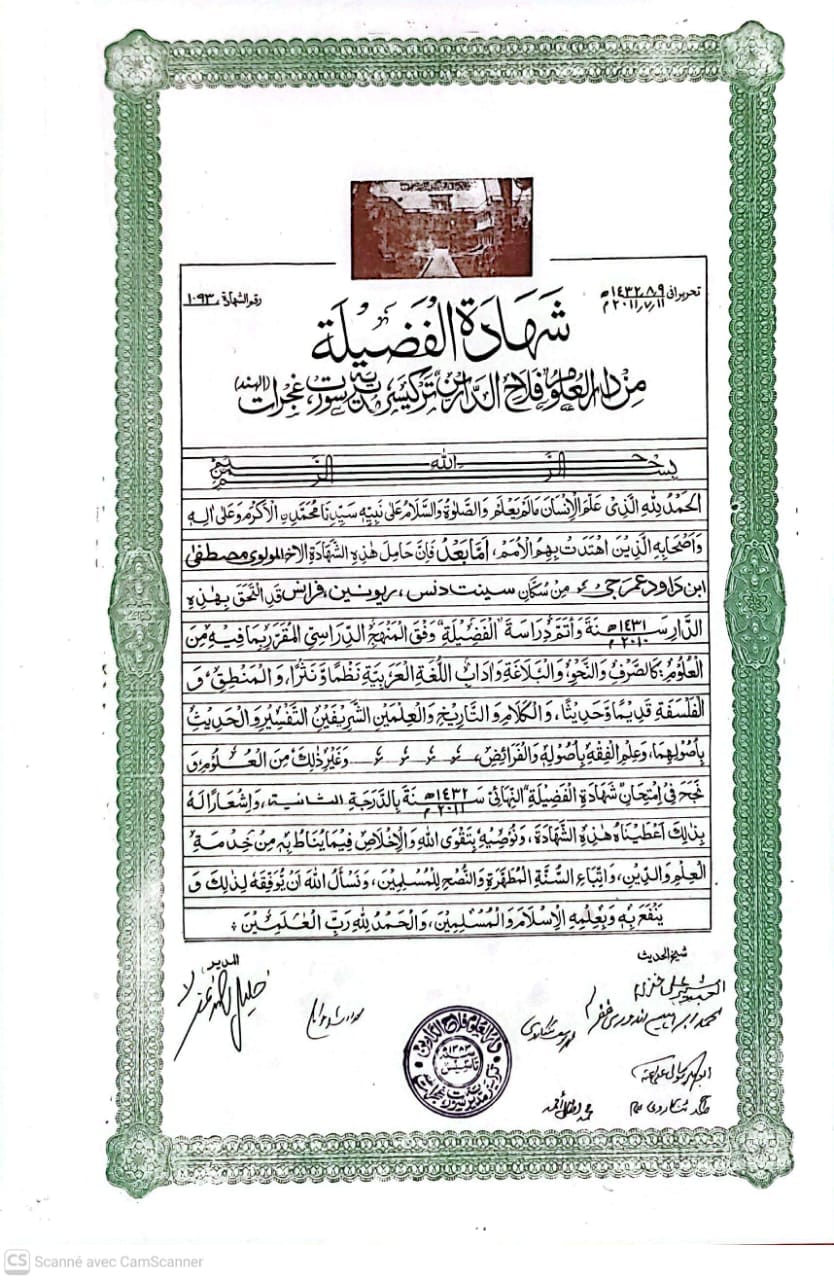 تحريرا في ٩؍٨؍١٤٣٢ھ
١١؍٧؍٢٠١١م
رقم الشهادة ١٠٩٣
شَهَادَةُ الْفَضِيْلَة
مِنْ دَارِ الْعُلُوْمِ فَلَاحِ الدَّارَيْنِ تركيسر، مديرية سورت، غجرات (الهند)
بِسْمِ اللهِ الرَّحْمٰنِ الرَّحِيْمِ
الحَمْدُ لِلّٰهِ الَّذِيْ عَلَّمَ الْإِنْسَانَ مَا لَمْ يَعْلَمْ وَالصَّلٰوةُ وَالسَّلَامُ عَلٰى نَبِيِّهٖ سَيِّدِنَا مُحَمَّدِنِ الْأَكْرَمِ وَعَلٰى اٰلِهٖ
وَاَصْحَابِهِ الَّذِيْنَ اهْتَدَتْ بِهِمُ الْأُمَمُ، اَمَّا بَعْدُ فَإِنَّ حَامِلَ هٰذِهِ الشَّهَادَةِ الاخ المولوى مصطفىٰ
ابن داود عمرجى مِنْ سُكَّانِ سينت دنس، ريونين، فرانس قَدِ الْتَحَقَ بِهٰذِهِ
الدَّارِ سَنَةَ ١٤٣١ھ ٢٠١٠م وَأَتَمَّ دِرَاسَةَ "الْفَضِيْلَةِ" وَفْقَ الْمَنْهَجِ الدِّرَاسِيِّ الْمُقَرَّرِ بِمَا فِيْهِ مِنَ
الْعُلُوْمِ: كَالصَّرْفِ وَالنَّحْوِ، وَالْبَلَاغَةِ وَاٰدَابِ اللُّغَةِ الْعَرَبِيَّةِ نَظْمًا وَّنَثْرًا، وَالْمَنْطِقِ وَ
الْفَلْسَفَةِ قَدِيْمًا وَّحَدِيْثًا، وَالْكَلَامِ وَالتَّارِيْخِ وَالْعِلْمَيْنِ الشَّرِيْفَيْنِ التَّفْسِيْرِ وَالْحَدِيْثِ
بِأُصُوْلِهِمَا، وَعِلْمِ الْفِقْهِ بِأُصُوْلِهٖ وَالْفَرَائِضِ، وَغَيْرِ ذٰلِكَ مِنَ الْعُلُوْمِ وَ
نَجَحَ فِيْ اِمْتِحَانِ شَهَادَةِ الْفَضِيْلَةِ "النِّهَائِيّ" سَنَةَ ١٤٣٢ھ ٢٠١١م بِالدَّرَجَةِ الثانية، وَإِشْعَارًا لَهٗ
بِذٰلِكَ اَعْطَيْنَاهُ هٰذِهِ الشَّهَادَةَ، وَنُوْصِيْهِ بِتَقْوَى اللهِ وَالْإِخْلَاصِ فِيْمَا يُنَاطُ بِهٖ مِنْ خِدْمَةِ
الْعِلْمِ وَالدِّيْنِ، وَاتِّبَاعِ السُّنَّةِ الْمُطَهَّرَةِ وَالنُّصْحِ لِلْمُسْلِمِيْنَ، وَنَسْأَلُ اللهَ اَنْ يُّوَفِّقَهٗ لِذٰلِكَ وَ
يَنْفَعَ بِهٖ وَبِعِلْمِهِ الْإِسْلَامَ وَالْمُسْلِمِيْنَ، وَالْحَمْدُ لِلّٰهِ رَبِّ الْعٰلَمِيْنَ
شيخ الحديث
المدير
دار العلوم فلاح الدارين
تأسيس
CS Scanné avec CamScanner